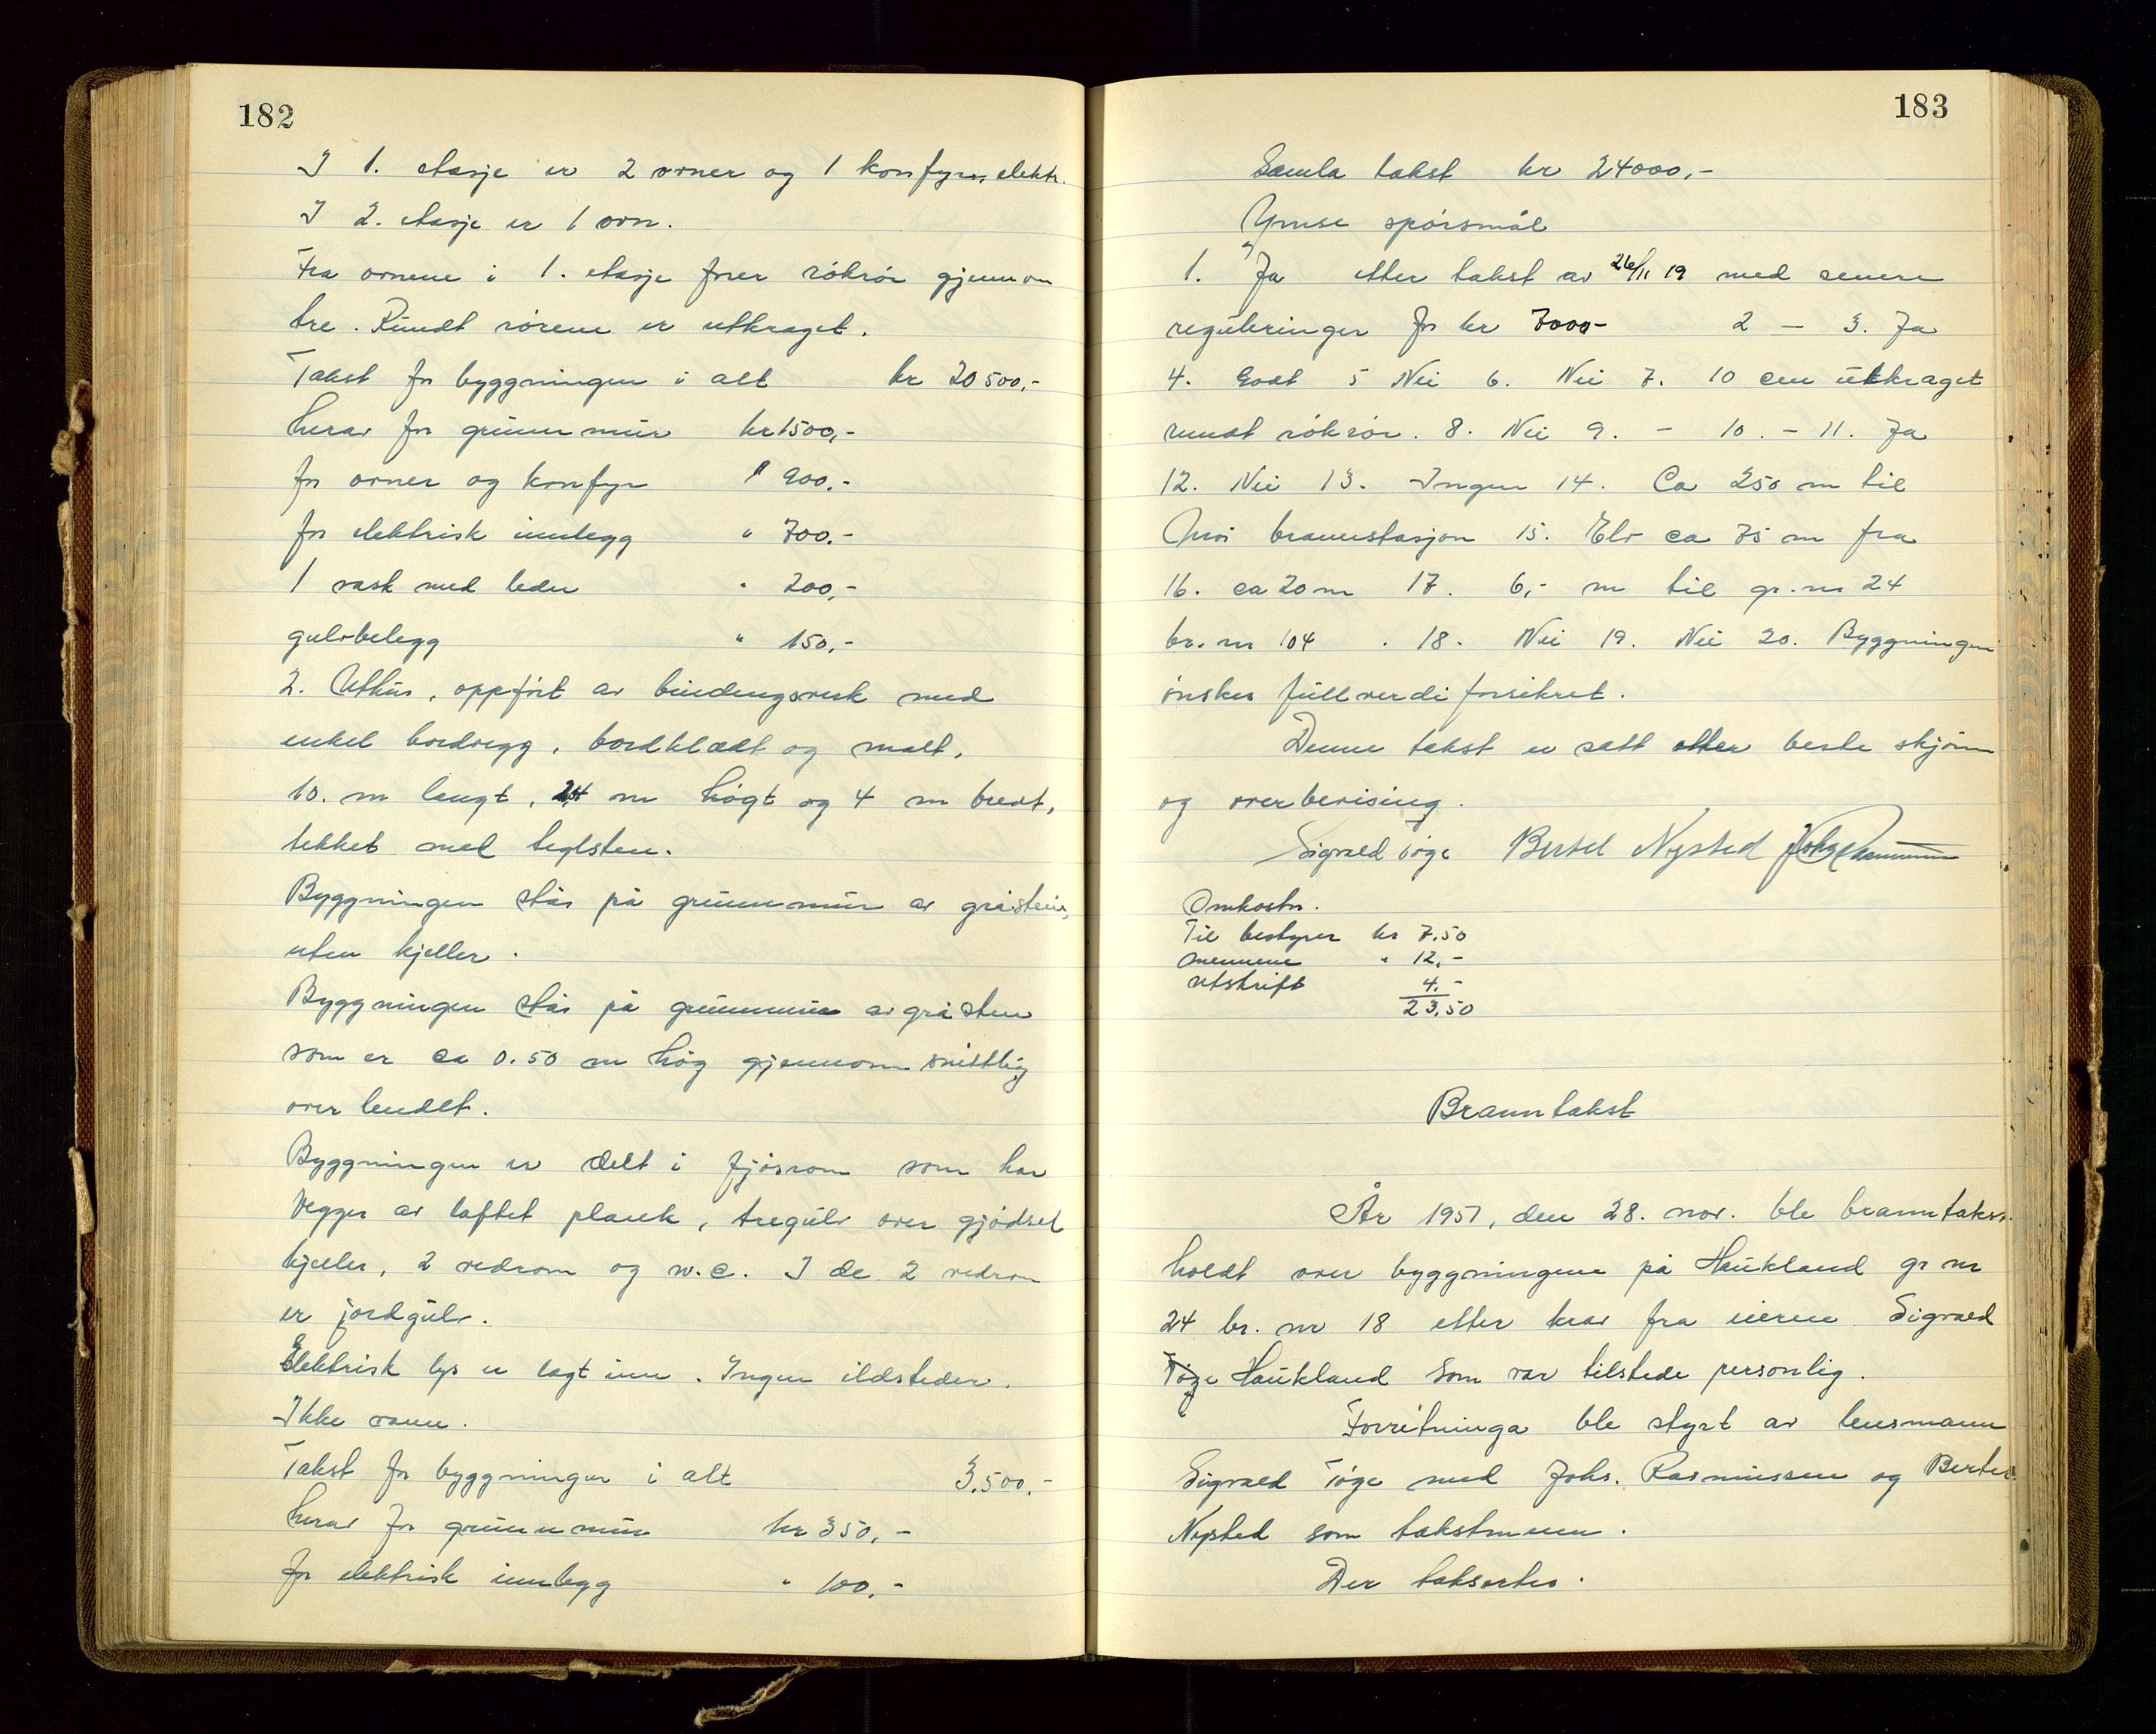 182
I 1. etasje er 2 ovner og 1 komfyr elektr.
I 2. etasje er 1 ovn.
Fra ovnene i 1. etasje fører rökrör gjennom
tre. Rundt rörene er utkraget.
Takst for byggningen i alt kr 20500,-
herav for grunnmur kr 1500,-
for ovner og komfyr " 900.-
for elektrisk innlegg " 700.-
1 vask med leder " 200,-
gulvbelegg " 150,-
2. Uthus, oppfört av bindingsverk med
enkel bordvegg, bordklædt og malt,
10. m langt, m högt og 4 m bredt,
tekket med teglsten.
Byggningen står på grunnmur av gråstein,
uten kjeller.
Byggningen står på grunnmur av gråsten
som er ca 0.50 m hög gjennomsnittlig
over lendet.
Byggningen er delt i fjösrom som har
vegger av laftet plank, tregulv over gjödsel
kjeller, 2 vedrom og w.c. I de 2 vedrom
er jordgulv.
Elektrisk lys er lagt inn. Ingen ildsteder.
Ikke vann.
Takst for byggningen i alt 3.500.-
herav for grunnmur kr 350,-
for elektrisk innlegg " 100,-
183
Samla takst kr 24000,-
Ymse spörsmål
1. Ja etter takst av 26/11 19 med senere
reguleringer for kr 7000- 2 – 3. Ja
4. Godt 5 Nei 6. Nei 7. 10 cm utkraget
rundt rökrör. 8. Nei 9. - 10. - 11. Ja
12. Nei 13. Ingen 14. Ca 250 m til
Moi brannstasjon 15. Elv ca 75 m fra
16. ca 20 m 17. 6,- m til gr. nr 24
br. nr 104 . 18. Nei 19. Nei 20. Byggningen
önskes fullverdiforsikret.
Denne takst er satt etter beste skjönn
og overbevising.
Sigvald Töge Bertel Nysted Johs Rasmussen
Omkostn.
Til bestyrer kr 7.50
mennene " 12,-
utskrift 4.-
23.50
Branntakst
År 1951, den 28. nov. ble branntakst
holdt over byggningene på Haukland gr nr
24 br. nr 18 etter krav fra eieren Sigvald
Töge Haukland som var tilstede personlig.
Forretninga ble styrt av lensmann
Sigvald Töge med Johs. Rasmussen og Bertel
Nysted som takstmenn.
Der taksertes.